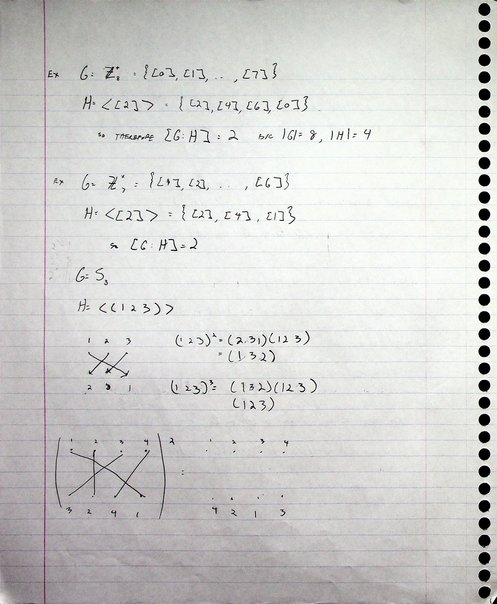 Ex G = ℤ₈⁺ = {[0], [1], .., [7]}
H = <[2]> = {[2], [4], [6], [0]}
so THEREFORE [G:H] = 2 b/c |G| = 8, |H| = 4
Ex G = ℤ₇ˣ = {[1], [2], ..., [6]}
H = <[2]> = {[2], [4], [1]}
so [G:H] = 2
G = S₃
H = <(1 2 3)>
1 2 3 (1 2 3)² = (2 31)(12 3)
= (1 3 2)
2 3 1 (1 2 3)³ = (132)(123)
(123)
1 2 3 4 2 1 2 3 4
:
3 2 4 1 4 2 1 3